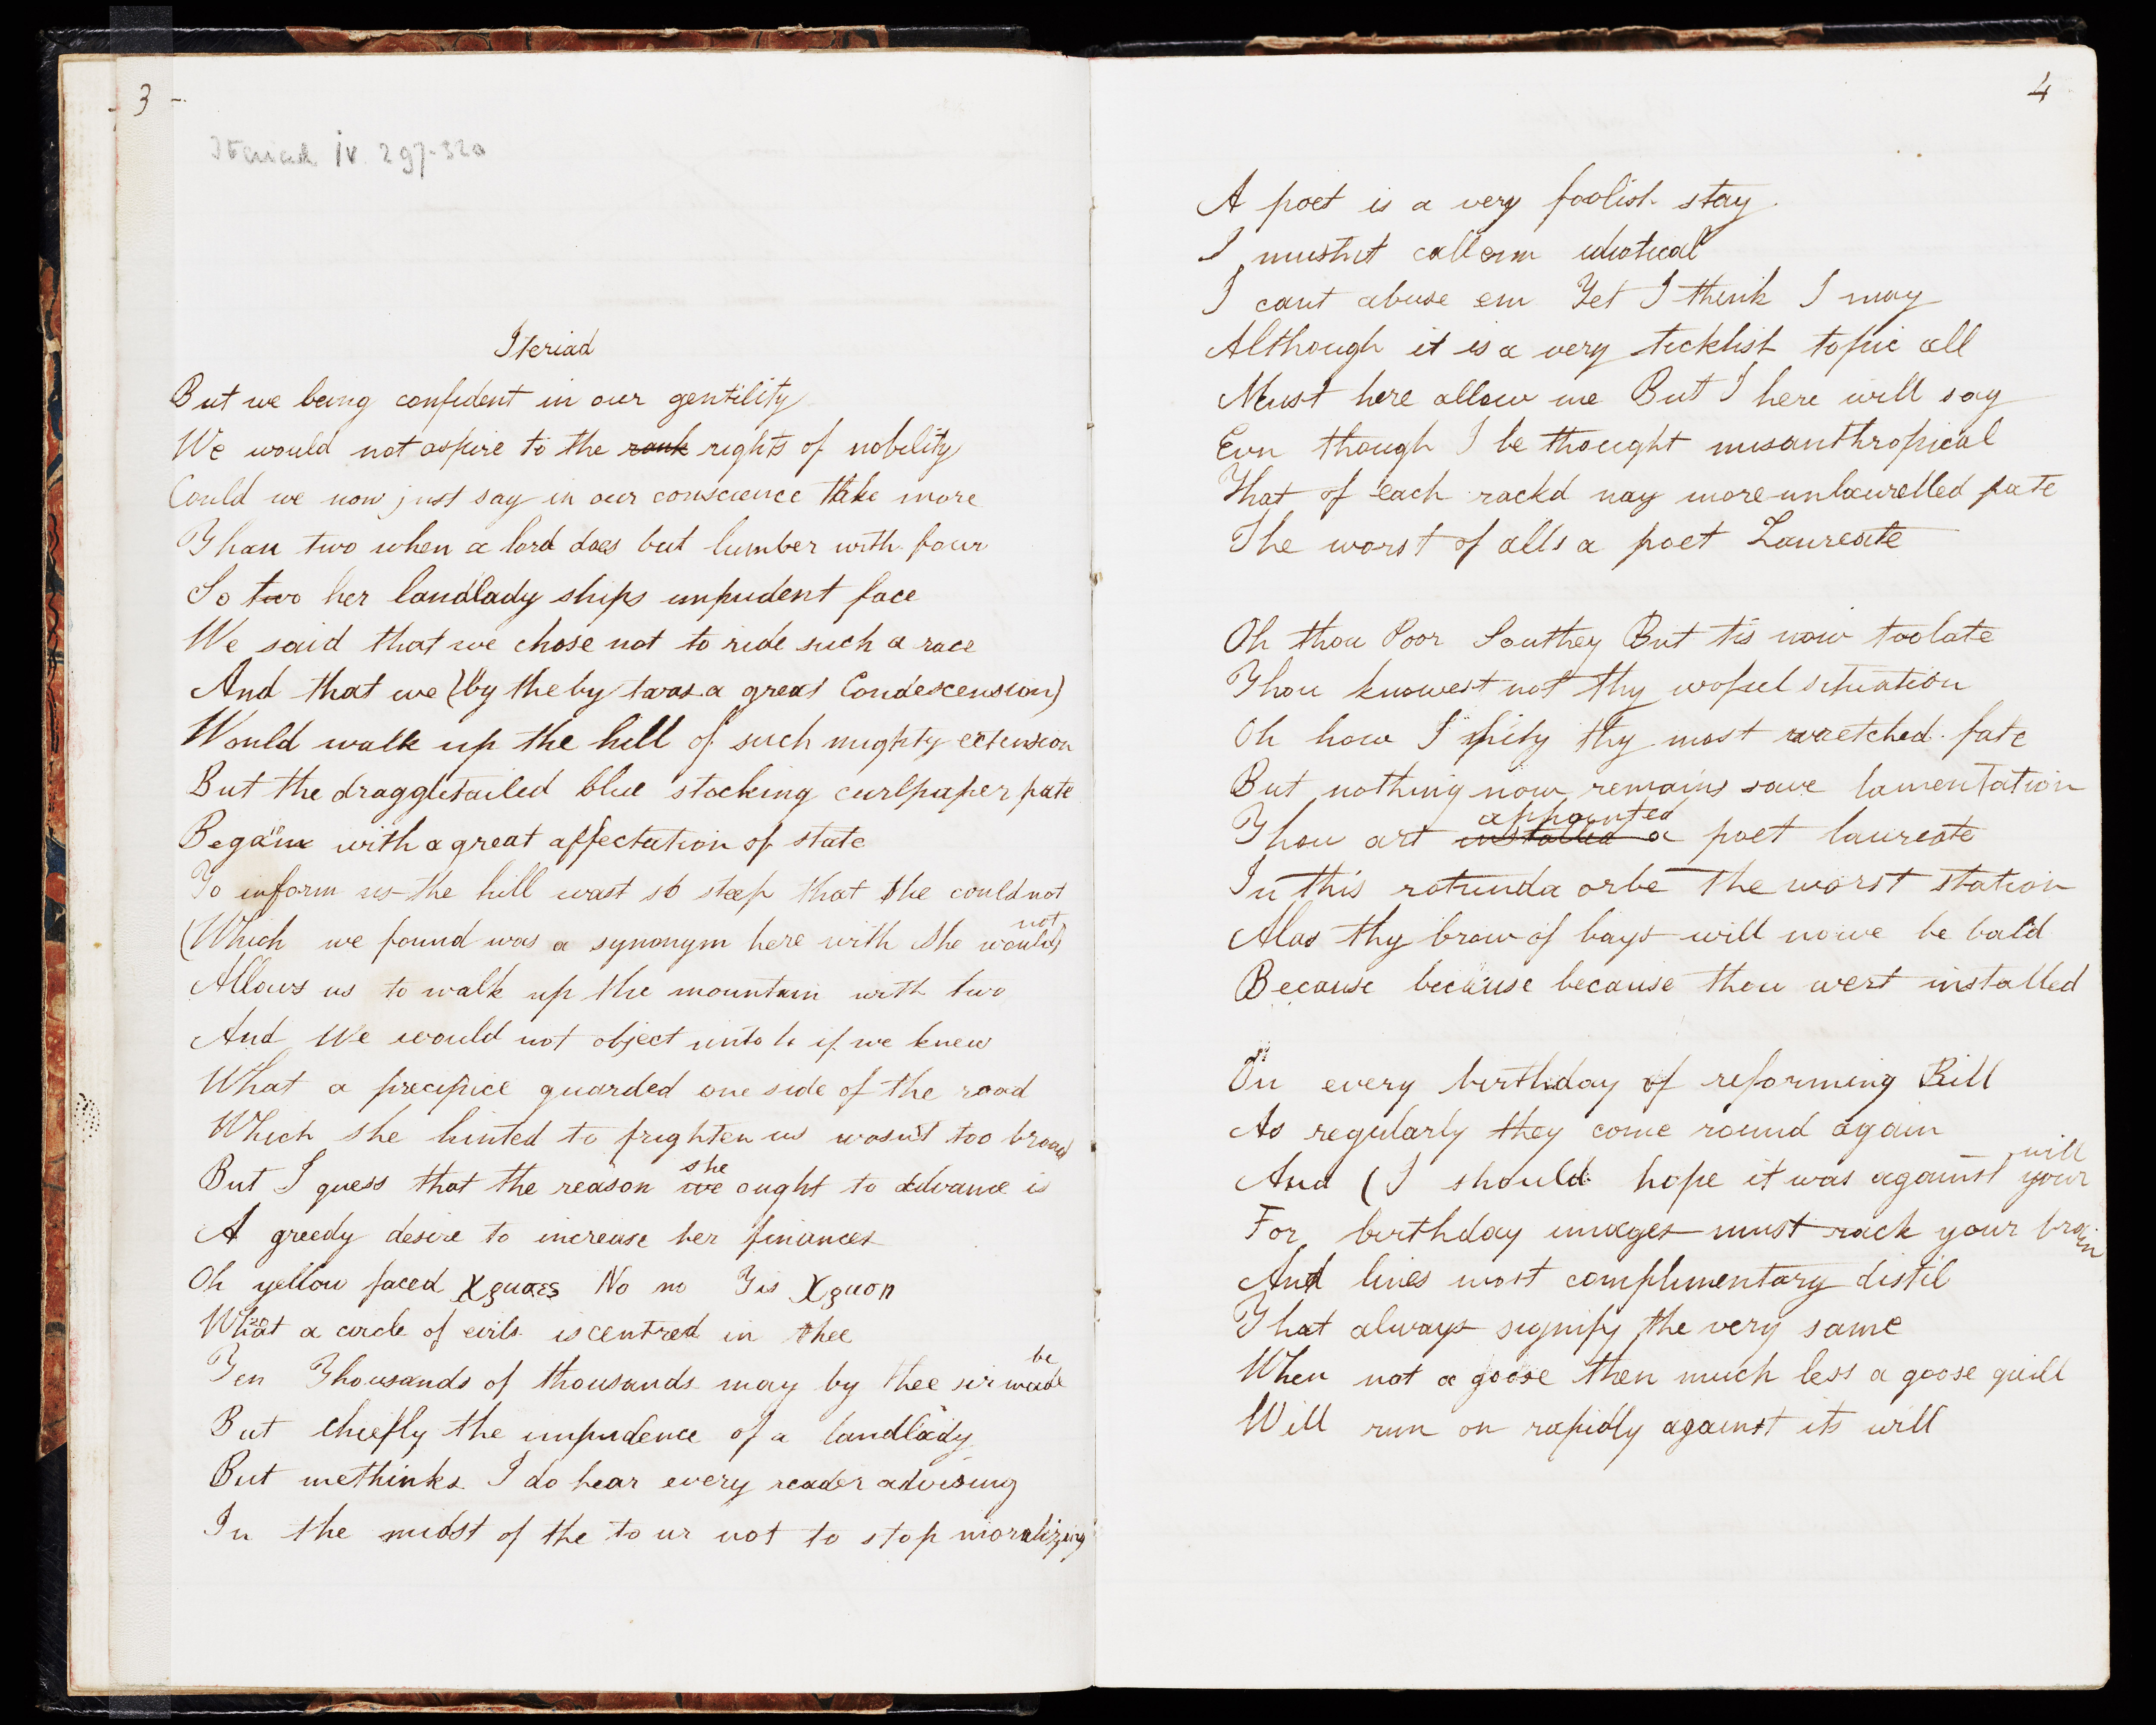 3
4
Iteriad iv. 297-320
Iteriad
But we being confident in our gentility
We would not aspire to the rank rights of nobility
Could we now just say in our conscience take more
Than two when a lord does but lumber with four
So two her landlady ships impudent face
We said that we chose not to ride such a race
And that we (by the by twas a great Condescension)
Would walk up the hill of such mighty extension
But the draggletailed blue stocking curlpaper pate
Began with a great affectation of state
To inform us the hill wast so steep that she could not
(Which we found was a synonym here with she would not)
Allows us to walk up the mountain with two
And We would not object unto it if we knew
What a precipice guarded one side of the road
Which she hinted to frighten us wasnt too broad
But I guess that the reason we she ought to advance is
A greedy desire to increase her finances
Oh yellow faced No no Tis
What a circle of evils is centred in thee
Ten Thousands of thousands may by thee sir be made
But chiefly the impudence of a landlady
But methinks I do hear every reader advising
In the midst of the to ur not to stop moralizing
A poet is a very foolish stay
I mustnt call em idiotical
I cant abuse em Yet I think I may
Although it is a very ticklish topic all
Must here allow me But I here will say
Evn though I be thought misanthropical
That of each rackd nay more unlaurelled pate
The worst of alls a poet Laureate
Oh thou Poor Southey But tis now toolate
Thou knowest not thy wofuel situation
Oh how I pity thy most wretched fate
But nothing now remains save lamentation
Thou art installed appointed a poet laureate
In this rotunda orbe the worst station
Alas thy brow of bays will nowe be bald
Because because because thou wert installed
On every birthday of reforming Bill
As regularly they come round again
And (I should hope it was against your will
For birthday images must rack your brain
And lines most complimentary distil
That always signify the very same
When not a goose then much less a goose quill
Will run on rapidly against its will